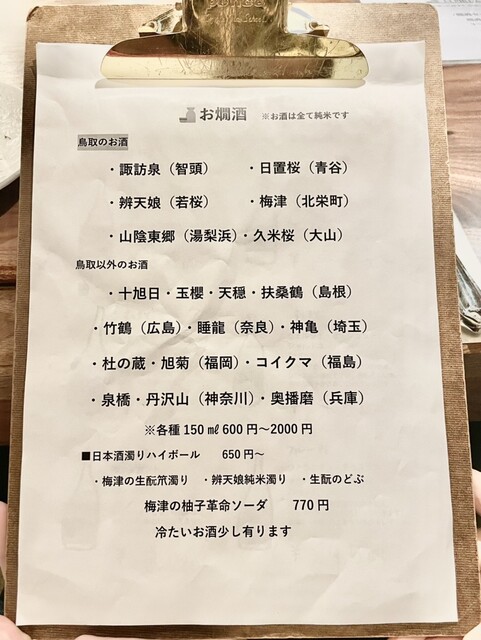 お燗酒 ※お酒は全て純米です
鳥取のお酒
・諏訪泉（智頭） ・日置桜（青谷）
・辨天娘（若桜） ・梅津（北栄町）
・山陰東郷（湯梨浜）・久米桜（大山）
鳥取以外のお酒
・十旭日・玉櫻・天穏・扶桑鶴（島根）
・竹鶴（広島）・睡龍（奈良）・神亀（埼玉）
・杜の蔵・旭菊（福岡）・コイクマ（福島）
・泉橋・丹沢山（神奈川）・奥播磨（兵庫）
※各種 150 ㎖ 600 円～2000 円
■日本酒濁りハイボール 650 円～
・梅津の生酛笊濁り ・辨天娘純米濁り ・生酛のどぶ
梅津の柚子革命ソーダ 770 円
冷たいお酒少し有ります